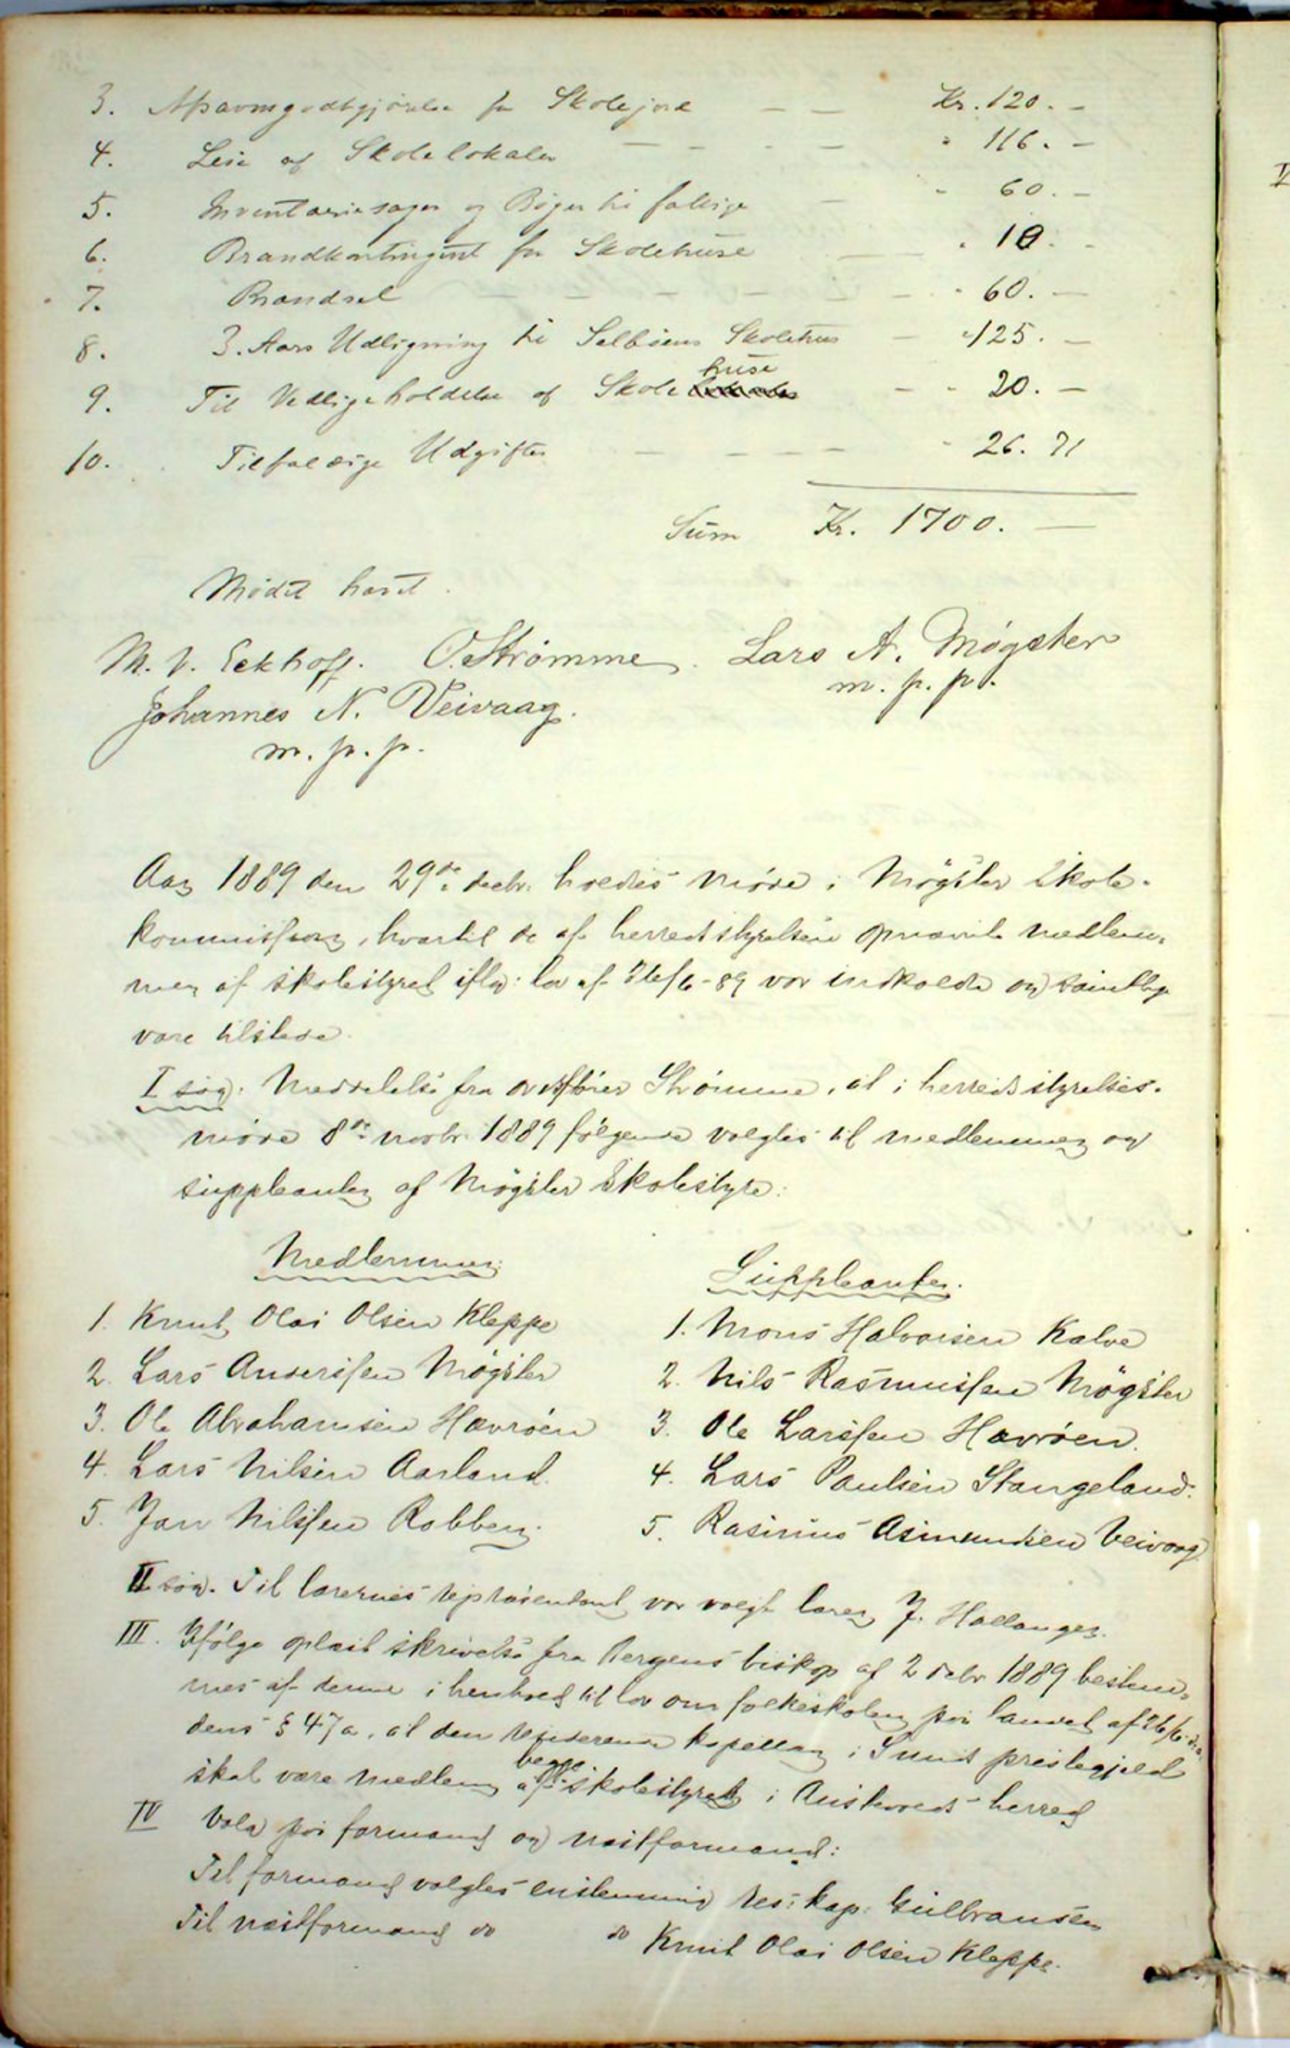 3. Afsavnsgodtgjörelse for Skolejord — — Kr. 120. -
4. Leie af Skolelokaler — — - — " 116. -
5. Inventariesager og Bøger til fattige — " 60. -
6. Brandkontingent for Skolehuse — — " 10. -
7. Brændsel — — — — — — " 60. —
8. 3. Aars Udligning til Selbiens Skolehus — " 125. —
9. Til Vedligeholdelse af Skolehuse — " 20. —
10. Tilfældige Udgifter — — — " 26. 71
Sum Kr. 1700. —
Mødet hævet.
M. V. Eckhoff. O. Strømme. Lars A. Møgster
m. p. p.
Johannes N. Veivaag.
m. p. p.
Aar 1889 den 29de decbr. holdtes møde i Møgster skole-
kommission, hvortil de af herredstyrelsen opnævnte medlem-
mer af skolestyret iflg. lov af 26/6-89 var indkaldte og samtlige
vare tilstede.
I sag. Meddelelse fra ordfører Strømme, at i herredsstyrelses-
møde 8de novbr. 1889 følgende valgtes til medlemmer og
suppleanter af Møgster skolestyre:
Medlemmer. Suppleanter.
1. Knut Olai Olsen Kleppe 1. Mons Halvorsen Kalve
2. Lars Anderssen Møgster 2. Nils Rasmussen Møgster
3. Ole Abrahamsen Havröen 3. Ole Larssen Havröen.
4. Lars Nilsen Aarland. 4. Lars Paulsen Stangeland.
5. Jan Nilssen Robben. 5. Rasmus Asmundsen Veivaag
II sag. Til lærernes repræsentant var valgt lærer J. Hallanger.
III. Ifølge oplæst skrivelse fra Bergens biskop af 2 debr 1889 bestem-
mes af denne i henhold til lov om folkeskolen paa landet af 26/6. d. a.
dens § 47a, at den residerende kapellan i Sunds prestegjeld
skal være medlem af begge skolestyrer i Austevolds herred
IV Valg paa formand og næstformand:
Til formand valgtes enstemmig res. kap. Gulbransen
Til næstformand do do Knut Olai Olsen Kleppe.